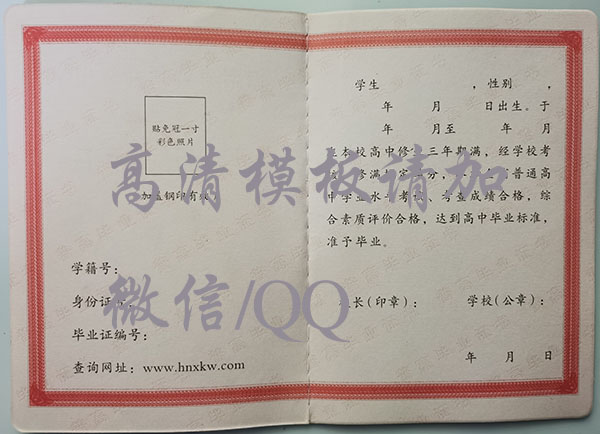 贴免冠一寸
彩色照片
(加盖钢印有效)
学籍号:
身份证号:
毕业证编号:
查询网址: www.hnxkw.com
学生 , 性别 ,
年 月 日出生。于
年 月至 年 月
在本校高中修业三年期满, 经学校考
修满 分,
普通高
中学业水平考试、考查成绩合格, 综
合素质评价合格, 达到高中毕业标准,
准予毕业。
校长(印章): 学校(公章):
年 月 日
高清模板请加
微信/QQ